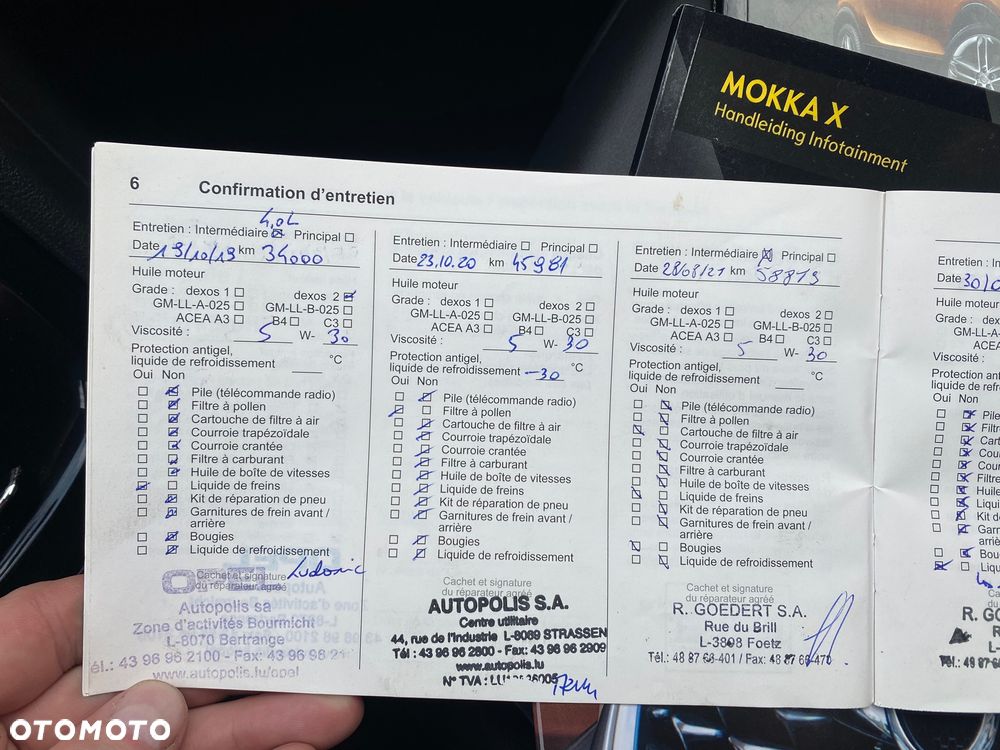 MOKKA X
Handleiding Infotainment
6 Confirmation d'entretien
4,0L
Entretien : Intermédiaire ☒ Principal ☐
Date 19/10/19 km 34000
Huile moteur
Grade : dexos 1 ☐ dexos 2 ☒
GM-LL-A-025 ☐ GM-LL-B-025 ☐
ACEA A3 ☐ B4 ☐ C3 ☐
Viscosité : 5 W- 30
Protection antigel,
liquide de refroidissement ____ °C
Oui Non
☐ ☒ Pile (télécommande radio)
☐ ☒ Filtre à pollen
☐ ☒ Cartouche de filtre à air
☐ ☒ Courroie trapézoïdale
☐ ☒ Courroie crantée
☐ ☒ Filtre à carburant
☐ ☒ Huile de boîte de vitesses
☒ ☐ Liquide de freins
☐ ☒ Kit de réparation de pneu
☐ ☒ Garnitures de frein avant /
arrière
☐ ☒ Bougies
☐ ☒ Liquide de refroidissement
Cachet et signature
du réparateur agréé
Ludovic
OPEL
Autopolis sa
Zone d'activités Bourmicht
L-8070 Bertrange
él.: 43 96 96 2100 - Fax: 43 96 96 21
www.autopolis.lu/opel
Entretien : Intermédiaire ☐ Principal ☐
Date 23.10.20 km 45981
Huile moteur
Grade : dexos 1 ☐ dexos 2 ☐
GM-LL-A-025 ☐ GM-LL-B-025 ☐
ACEA A3 ☐ B4 ☐ C3 ☐
Viscosité : 5 W- 30
Protection antigel,
liquide de refroidissement -30 °C
Oui Non
☐ ☒ Pile (télécommande radio)
☒ ☐ Filtre à pollen
☐ ☒ Cartouche de filtre à air
☐ ☒ Courroie trapézoïdale
☐ ☒ Courroie crantée
☐ ☒ Filtre à carburant
☐ ☒ Huile de boîte de vitesses
☐ ☒ Liquide de freins
☐ ☒ Kit de réparation de pneu
☐ ☒ Garnitures de frein avant /
arrière
☐ ☒ Bougies
☐ ☒ Liquide de refroidissement
Cachet et signature
du réparateur agréé
AUTOPOLIS S.A.
Centre utilitaire
44, rue de l'Industrie L-8069 STRASSEN
Tél : 43 96 96 2800 - Fax : 43 96 96 2909
www.autopolis.lu
N° TVA :
Entretien : Intermédiaire ☒ Principal ☐
Date 28/08/21 km 58819
Huile moteur
Grade : dexos 1 ☐ dexos 2 ☐
GM-LL-A-025 ☐ GM-LL-B-025 ☐
ACEA A3 ☐ B4 ☐ C3 ☐
Viscosité : 5 W- 30
Protection antigel,
liquide de refroidissement ____ °C
Oui Non
☐ ☒ Pile (télécommande radio)
☐ ☒ Filtre à pollen
☒ ☐ Cartouche de filtre à air
☐ ☒ Courroie trapézoïdale
☐ ☒ Courroie crantée
☐ ☒ Filtre à carburant
☐ ☒ Huile de boîte de vitesses
☒ ☐ Liquide de freins
☐ ☒ Kit de réparation de pneu
☐ ☒ Garnitures de frein avant /
arrière
☒ ☐ Bougies
☐ ☒ Liquide de refroidissement
Cachet et signature
du réparateur agréé
R. GOEDERT S.A.
Rue du Brill
L-3898 Foetz
Tél.: 48 87 68-401 / Fax: 48 87 68-470
Date 30/0
Huile moteur
Oui Non
R. GOE
OTOMOTO